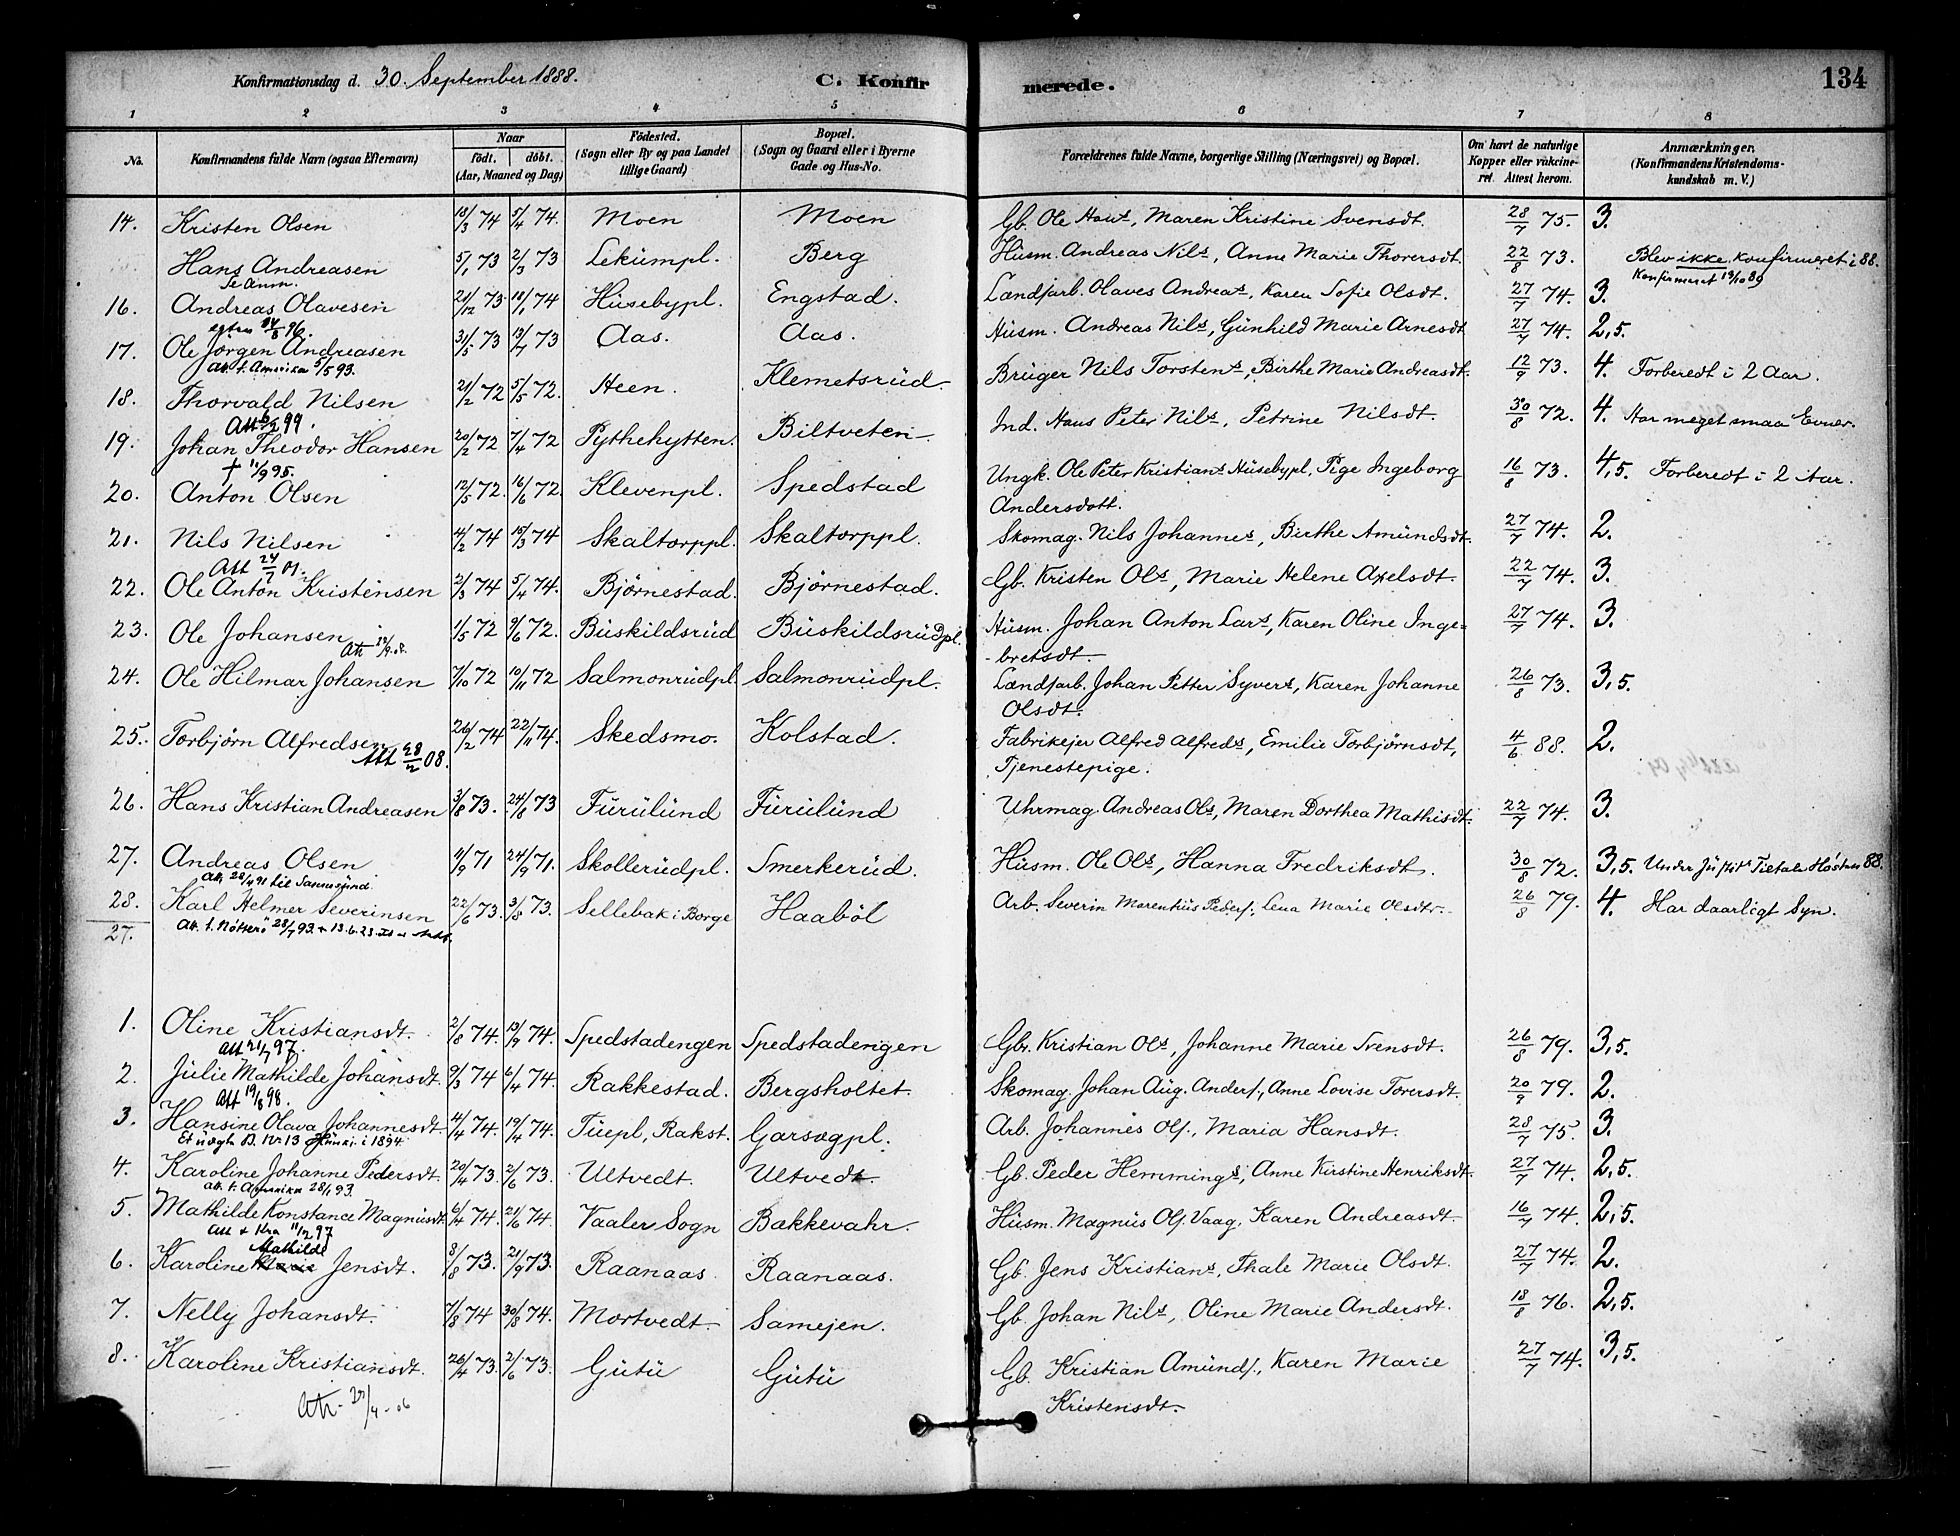 Konfirmationsdag d. 30. September 1888. C. Konfirmerede. 134
1 2 3 4 5 6 7 8
No. Konfirmandens fulde Navn (ogsaa Efternavn) Naar födt. döbt. (Aar, Maaned og Dag) Födested. (Sogn eller By og paa Landet tillige Gaard) Bopæl. (Sogn og Gaard eller i Byerne Gade og Hus-No. Forældrenes fulde Navne, borgerlige Stilling (Næringsvei) og Bopæl. Om havt de naturlige Kopper eller vakcineret. Attest herom. Anmærkninger. (Konfirmandens Kristendomskundskab m. V.)
14. Kristen Olsen 18/3 74 5/4 74. Moen Moen Gb. Ole Hans, Maren Kristine Svensdt. 28/7 75. 3.
Hans Andreasen 5/1 73 2/3 73 Lekumpl. Berg Husm. Andreas Nils, Anne Marie Thorersdt. 22/8 73. Blev ikke konfirmeret i 88.
Se anm. Konfirmeret 13/10 89
16. Andreas Olavesen 21/12 73 18/1 74 Husebypl. Engstad. Landarb. Olaves Andreas, Karen Sofie Olsdt. 27/7 74. 3.
17. Ole Jörgen Andreasen 31/5 73 13/7 73 Aas. Aas. Husm. Andreas Nils, Gunhild Marie Arnesdt 27/7 74. 2,5.
Att. t. Amerika 5/5 93.
18. Thorvald Nilsen 21/2 72 5/5 72. Heen. Klemetsrud Bruger Nils Torstens, Birthe Marie Andreasdt. 12/9 73. 4. Forberedt i 2 Aar.
19. Johan Theodor Hansen 20/2 72 7/4 72 Pythehytten. Biltveten Ind. Hans Peter Nils, Petrine Nilsdt. 30/8 72. 4. Har meget smaa Evner.
† 11/9 95.
20. Anton Olsen 12/5 72. 16/6 72. Klevenpl. Spedstad Ungk. Ole Peter Kristians Husebypl, Pige Ingeborg 16/8 73. 4,5. Forberedt i 2 Aar.
Andersdatt.
21. Nils Nilsen 4/2 74 15/3 74 Skaltorppl. Skaltorppl. Skomag. Nils Johannes, Birthe Amundsdt. 27/7 74. 2.
Att 24/7 01.
22. Ole Anton Kristensen 2/3 74 5/4 74. Björnestad. Björnestad. Gb. Kristen Ols, Marie Helene Axelsdt. 22/7 74. 3.
23. Ole Johansen 1/5 72 9/6 72. Buskildsrud Buskildsrudpl. Husm. Johan Anton Lars, Karen Oline Inge-
-bretsdt. 27/7 74. 3.
24. Ole Hilmar Johansen 7/10 72 10/11 72 Salmonrudpl. Salmonrudpl. Landarb. Johan Petter Syvers, Karen Johanne 26/8 73. 3,5.
Olsdt.
25. Torbjörn Alfredsen 26/2 74 22/11 74. Skedsmo. Kolstad. Fabrikejer Alfred Alfreds, Emilie Torbjörnsdt, 4/6 88. 2.
Att 28/2 08. Tjenestepige.
26. Hans Kristian Andreasen 3/8 73. 24/8 73 Furulund Furulund Uhrmag. Andreas Ols, Maren Dorthea Mathisdt. 22/7 74. 3.
27. Andreas Olsen 11/9 71 24/9 71. Skollerudpl. Smerkerud. Husm. Ole Ols, Hanna Fredriksdt. 30/8 72. 3,5. Under Tiltale Hösten 88.
28. Karl Helmer Severinsen 22/6 73. 3/8 73. Sellebak i Borge Haaböl Arb. Severin Marentius Peders, Lena Marie Olsdtr. 26/8 79. 4. Har daarligt Syn.
27. Att. t. Nötterö 28/7 93.
1. Oline Kristiansdt. 2/8 74. 13/9 74. Spedstadengen Spedstadengen Gbr. Kristian Ols, Johanne Marie Svensdt. 26/8 79. 3,5.
Att 21/7 97.
2. Julie Mathilde Johansdt. 9/3 74 6/4 74. Rakkestad. Bergsholtet. Skomag. Johan Aug. Anders, Anne Lovise Torersdt. 20/9 79. 2.
Att 19/8 98.
3. Hansine Olava Johannesdt. 4/4 74. 19/4 74. Tuepl, Rakst. Garsegpl. Arb. Johannes Ols, Maria Hansdt. 28/7 75. 3.
4. Karoline Johanne Pedersdt. 20/4 73. 2/6 73. Ultvedt. Ultvedt Gb. Peder Hemmings, Anne Kirstine Henriksdt. 27/7 74. 2,5.
Att. t. Amerika 28/1 93.
5. Mathilde Konstance Magnusdt. 6/4 74. 21/6 74. Vaaler Sogn Bakkevahr. Husm. Magnus Ols. Vaag, Karen Andreasdt. 16/7 74. 2,5.
Att t Kra 11/2 97
Mathilde
6. Karoline Marie Jensdt. 8/8 73. 21/9 73. Raanaas. Raanaas. Gb. Jens Kristians, Thale Marie Olsdt. 27/7 74. 2.
7. Nelly Johansdt. 7/8 74 30/8 74. Mortvedt. Samejen. Gb. Johan Nils, Oline Marie Andersdt. 18/8 76. 2,5.
8. Karoline Kristiansdt. 26/4 73. 2/6 73. Gutu Gutu Gb. Kristian Amunds, Karen Marie 27/7 74. 3,5.
Kristensdt.